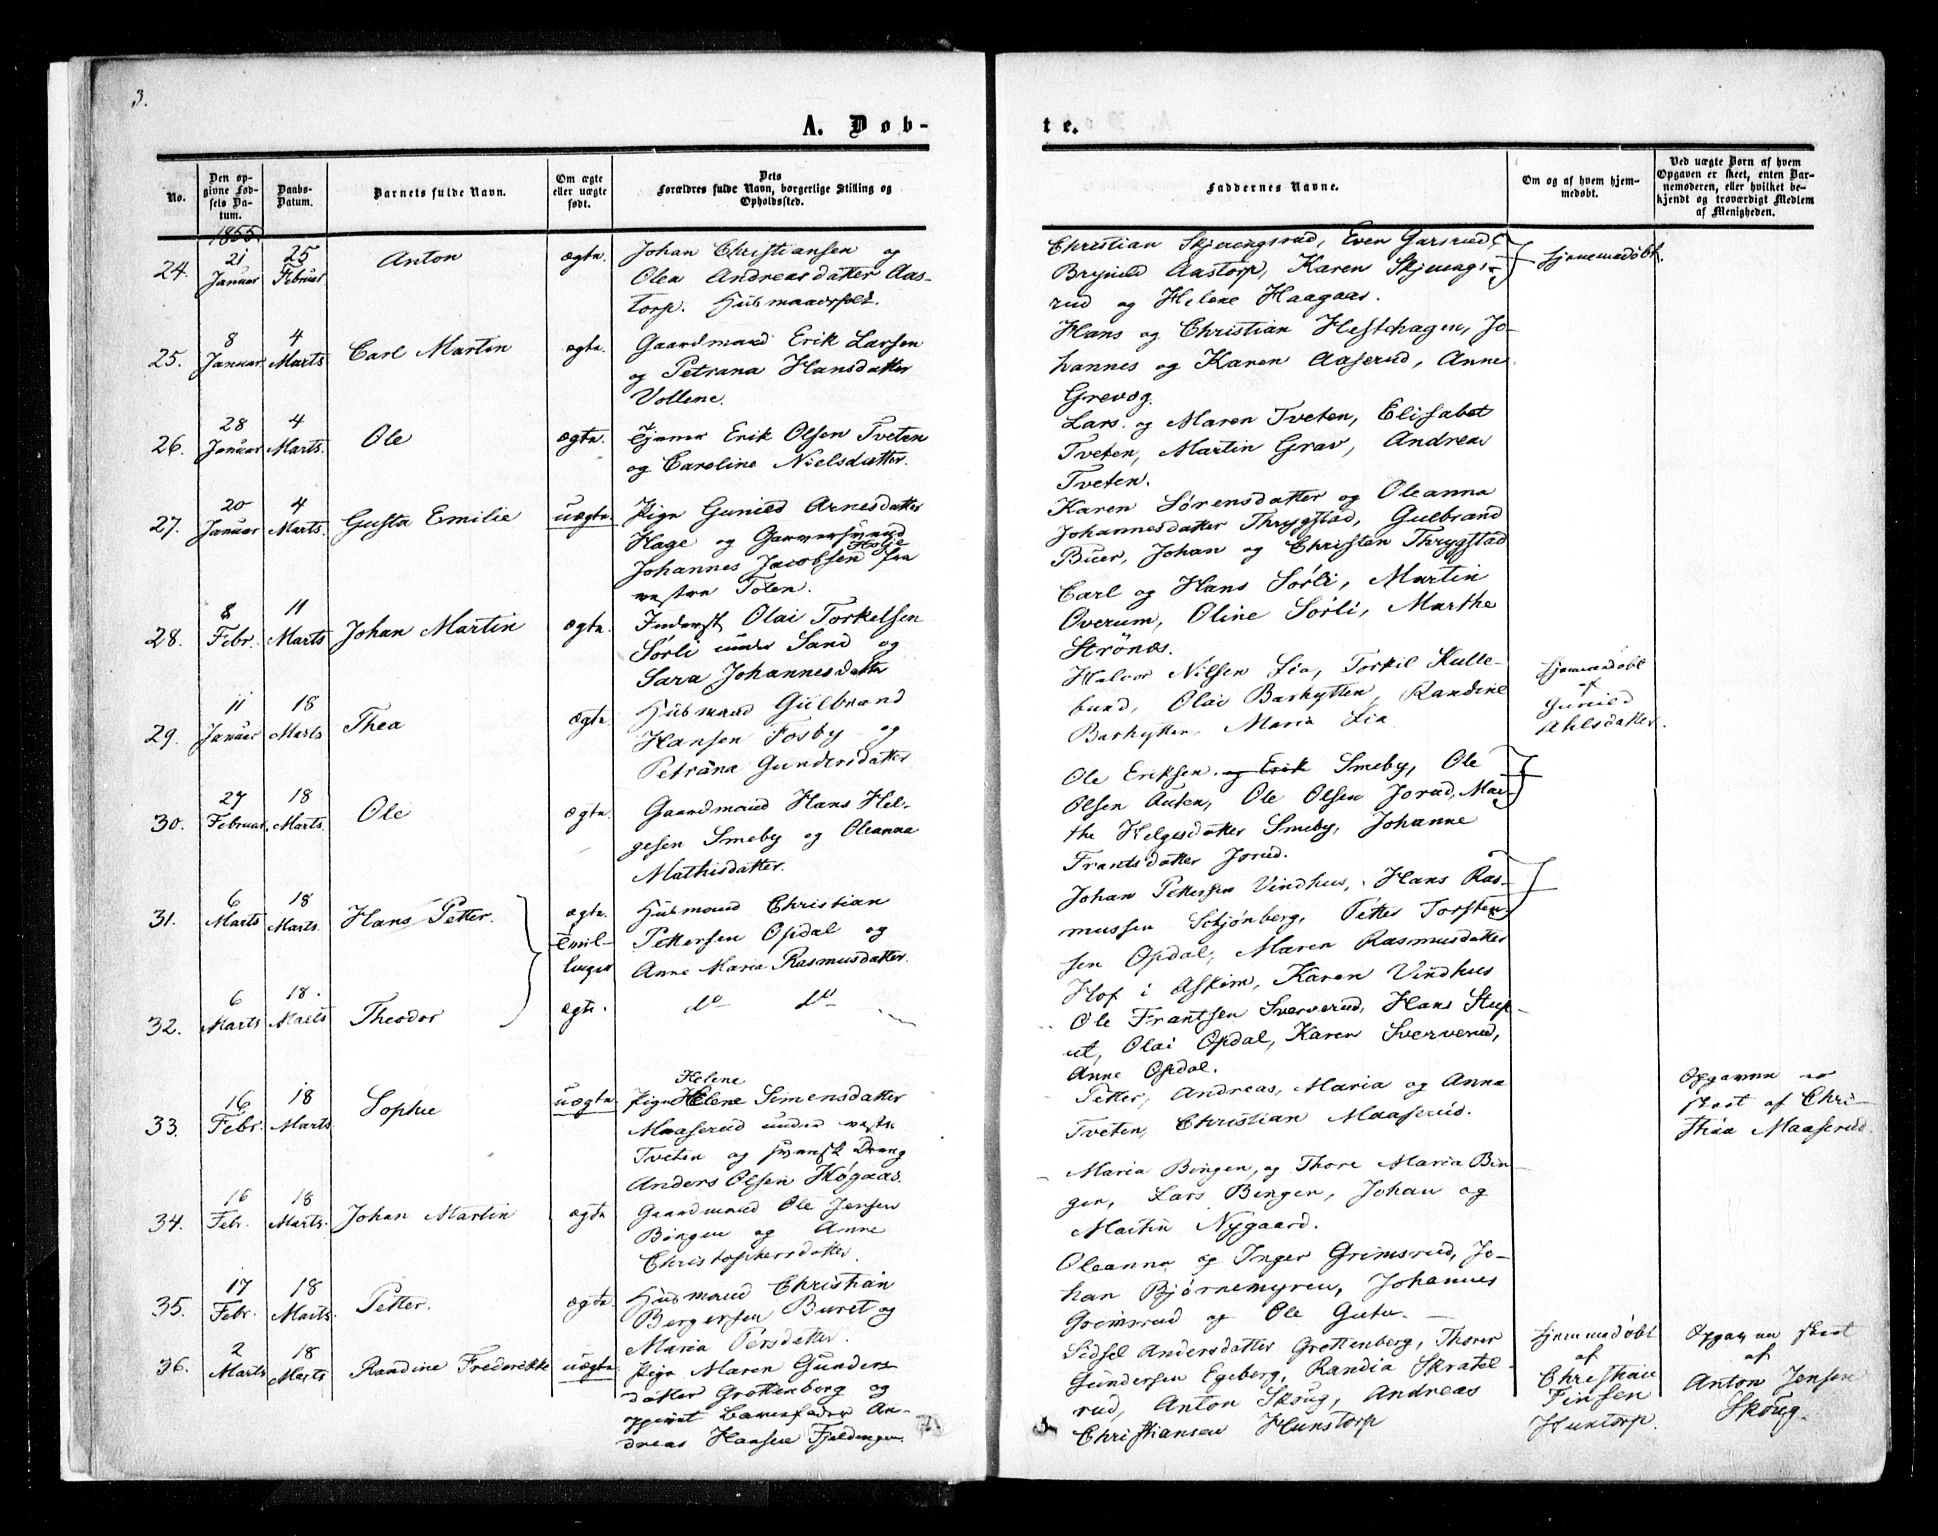 3.
A. Døb-
te.
No.
Den op-
givne Fød-
sels Da-
tum.
Daabs-
Datum.
Barnets fulde Navn.
Om ægte
eller uægte
født.
Dets
Forældres fulde Navn, borgerlige Stilling og
Opholdssted.
Faddernes Navne.
Om og af hvem hjem-
medøbt.
Ved uægte Børn af hvem
Opgaven er skeet, enten Bar-
nemoderen, eller hvilket be-
kjendt og troværdigt Medlem
af Menigheden.
1855.
24.
21
Januar
25
Februar
Anton
ægte.
Johan Christiansen og
Olea Andreasdatter Aas-
torp. Husmandsfolk.
Christian Skjerengsrud, Even Garsrud,
Brynild Aastorp, Karen Skjerengs-
rud og Helene Haagaas.
Hjemmedøbt.
25.
8
Januar
4
Marts
Carl Martin
ægte.
Gaardmand Erik Larsen
og Petrana Hansdatter
Vollene.
Hans og Christian Hesthagen, Jo-
hannes og Karen Aaserud, Anne
Grevog.
26.
28
Januar
4
Marts.
Ole
ægte.
Tjener Erik Olsen Tveten
og Caroline Nielsdatter.
Lars og Maren Tveten, Elisabet
Tveten, Martin Grav, Andreas
Tveten.
27.
20
Januar
4
Marts.
Gusta Emilie
uægte.
Pige Gunild Arnesdatter
Hage og Garversvend
Johannes Jacobsen Holje fra
vestre Toten.
Karen Sørensdatter og Oleanna
Johannesdatter Thrygstad, Gulbrand
Buer, Johan og Christen Thrygstad
28.
8
Febr.
11
Marts
Johan Martin
ægte.
Inderst Olai Torkelsen
Sørli under Sand og
Sara Johannesdatter
Carl og Hans Sørli, Martin
Overum, Oline Sørli, Marthe
Strönæs.
29.
11
Januar
18
Marts
Thea
ægte.
Husmand Gulbrand
Hansen Fosby og
Petrana Gundersdatter
Halvor Nilsen Lia, Torkil Kulle-
bund, Olai Barhytten, Randine
Barhytten, Maria Lia
Hjemmedøbt
af
Gunild
Ahlsdatter.
30.
27
Februar.
18
Marts.
Ole
ægte.
Gaardmand Hans Hel-
gesen Smeby og Oleanna
Mathisdatter.
Ole Eriksen og Erik Smeby, Ole
Olsen Auten, Ole Olsen Jorud, Mar-
the Helgesdatter Smeby, Johanne
Frantsdatter Jorud.
31.
6
Marts
18
Marts.
Hans Petter.
ægte.
Tvil-
linger
Husmand Christian
Pettersen Opdal og
Anne Maria Rasmusdatter.
Johan Pettersen Vindhus, Hans Ras-
mussen Schjønberg, Petter Torsten-
sen Opdal, Maren Rasmusdatter
Hof i Askim, Karen Vindhus
32.
6
Marts
18.
Marts
Theodor
ægte.
do do
Ole Frantsen Sververud, Hans Step-
ut, Olai Opdal, Karen Sververud,
Anne Opdal.
33.
16
Febr.
18
Marts
Sophie
uægte.
Helene
Pige Helene Simensdatter
Maaserud under vestre
Tveten og svensk Dreng
Anders Olsen Høgaas.
Petter, Andreas, Maria og Anna
Tveten, Christian Maaserud.
Opgaven er
skeet af Chri-
stian Maaserud
34.
16
Febr.
18
Marts.
Johan Martin
ægte
Gaardmand Ole Jensen
Bingen og Anne
Christophersdatter.
Maria Bingen, og Thore Maria Bin-
gen, Lars Bingen, Johan og
Martin Nygaard.
35.
17
Febr.
18
Marts.
Petter.
ægte.
Husmand Christian
Bergersen Buret og
Maria Persdatter.
Oleanna og Inger Grimsrud, Jo-
han Bjørnemyren, Johannes
Grimsrud og Ole Gutu.
36.
2
Marts
18
Marts
Randine Frederikke
uægte.
Pige Maren Gunders-
datter Grottenberg og
opgivet Barnefader An-
dreas Hansen Fjeldingen.
Sidsel Andersdatter Grottenberg, Thorer
Gundersen Egeberg, Randia Skratel-
rud, Anton Skoug, Andreas
Christiansen Hunstorp
Hjemmedøbt
af
Christian
Finsen
Huntorp.
Opgaven skeet
af
Anton Jensen
Skoug.